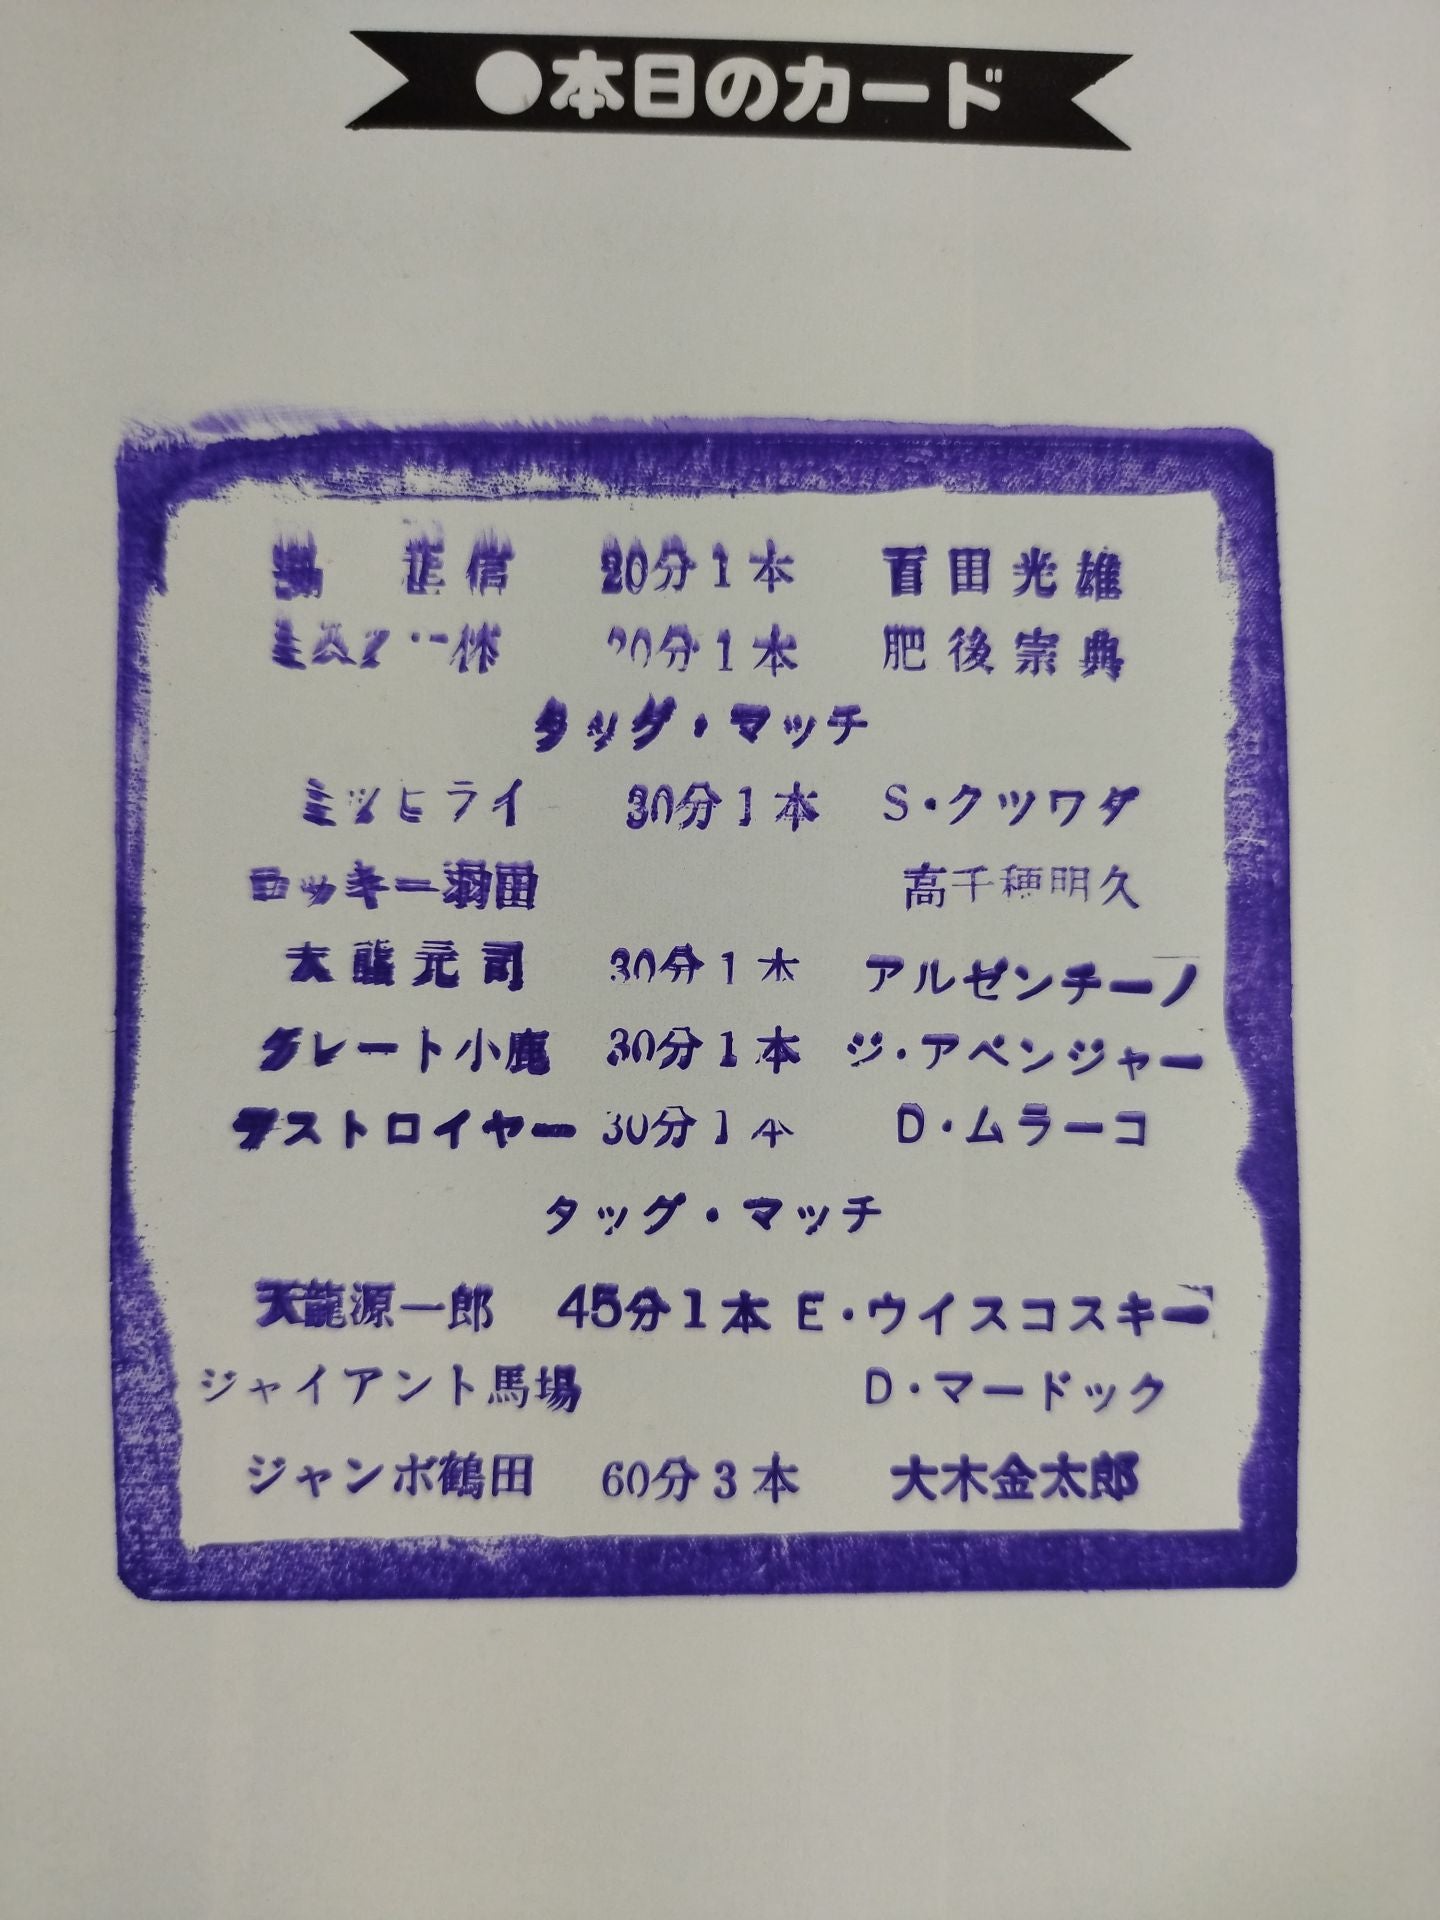 ●本日のカード
正信 20分1本 百田光雄
林 20分1本 肥後宗典
タッグ・マッチ
ミツヒライ 30分1本 S・クツワダ
ロッキー羽田 高千穂明久
大熊元司 30分1本 アルゼンチーノ
グレート小鹿 30分1本 ジ・アベンジャー
デストロイヤー 30分1本 D・ムラーコ
タッグ・マッチ
天龍源一郎 45分1本 E・ウイスコスキー
ジャイアント馬場 D・マードック
ジャンボ鶴田 60分3本 大木金太郎